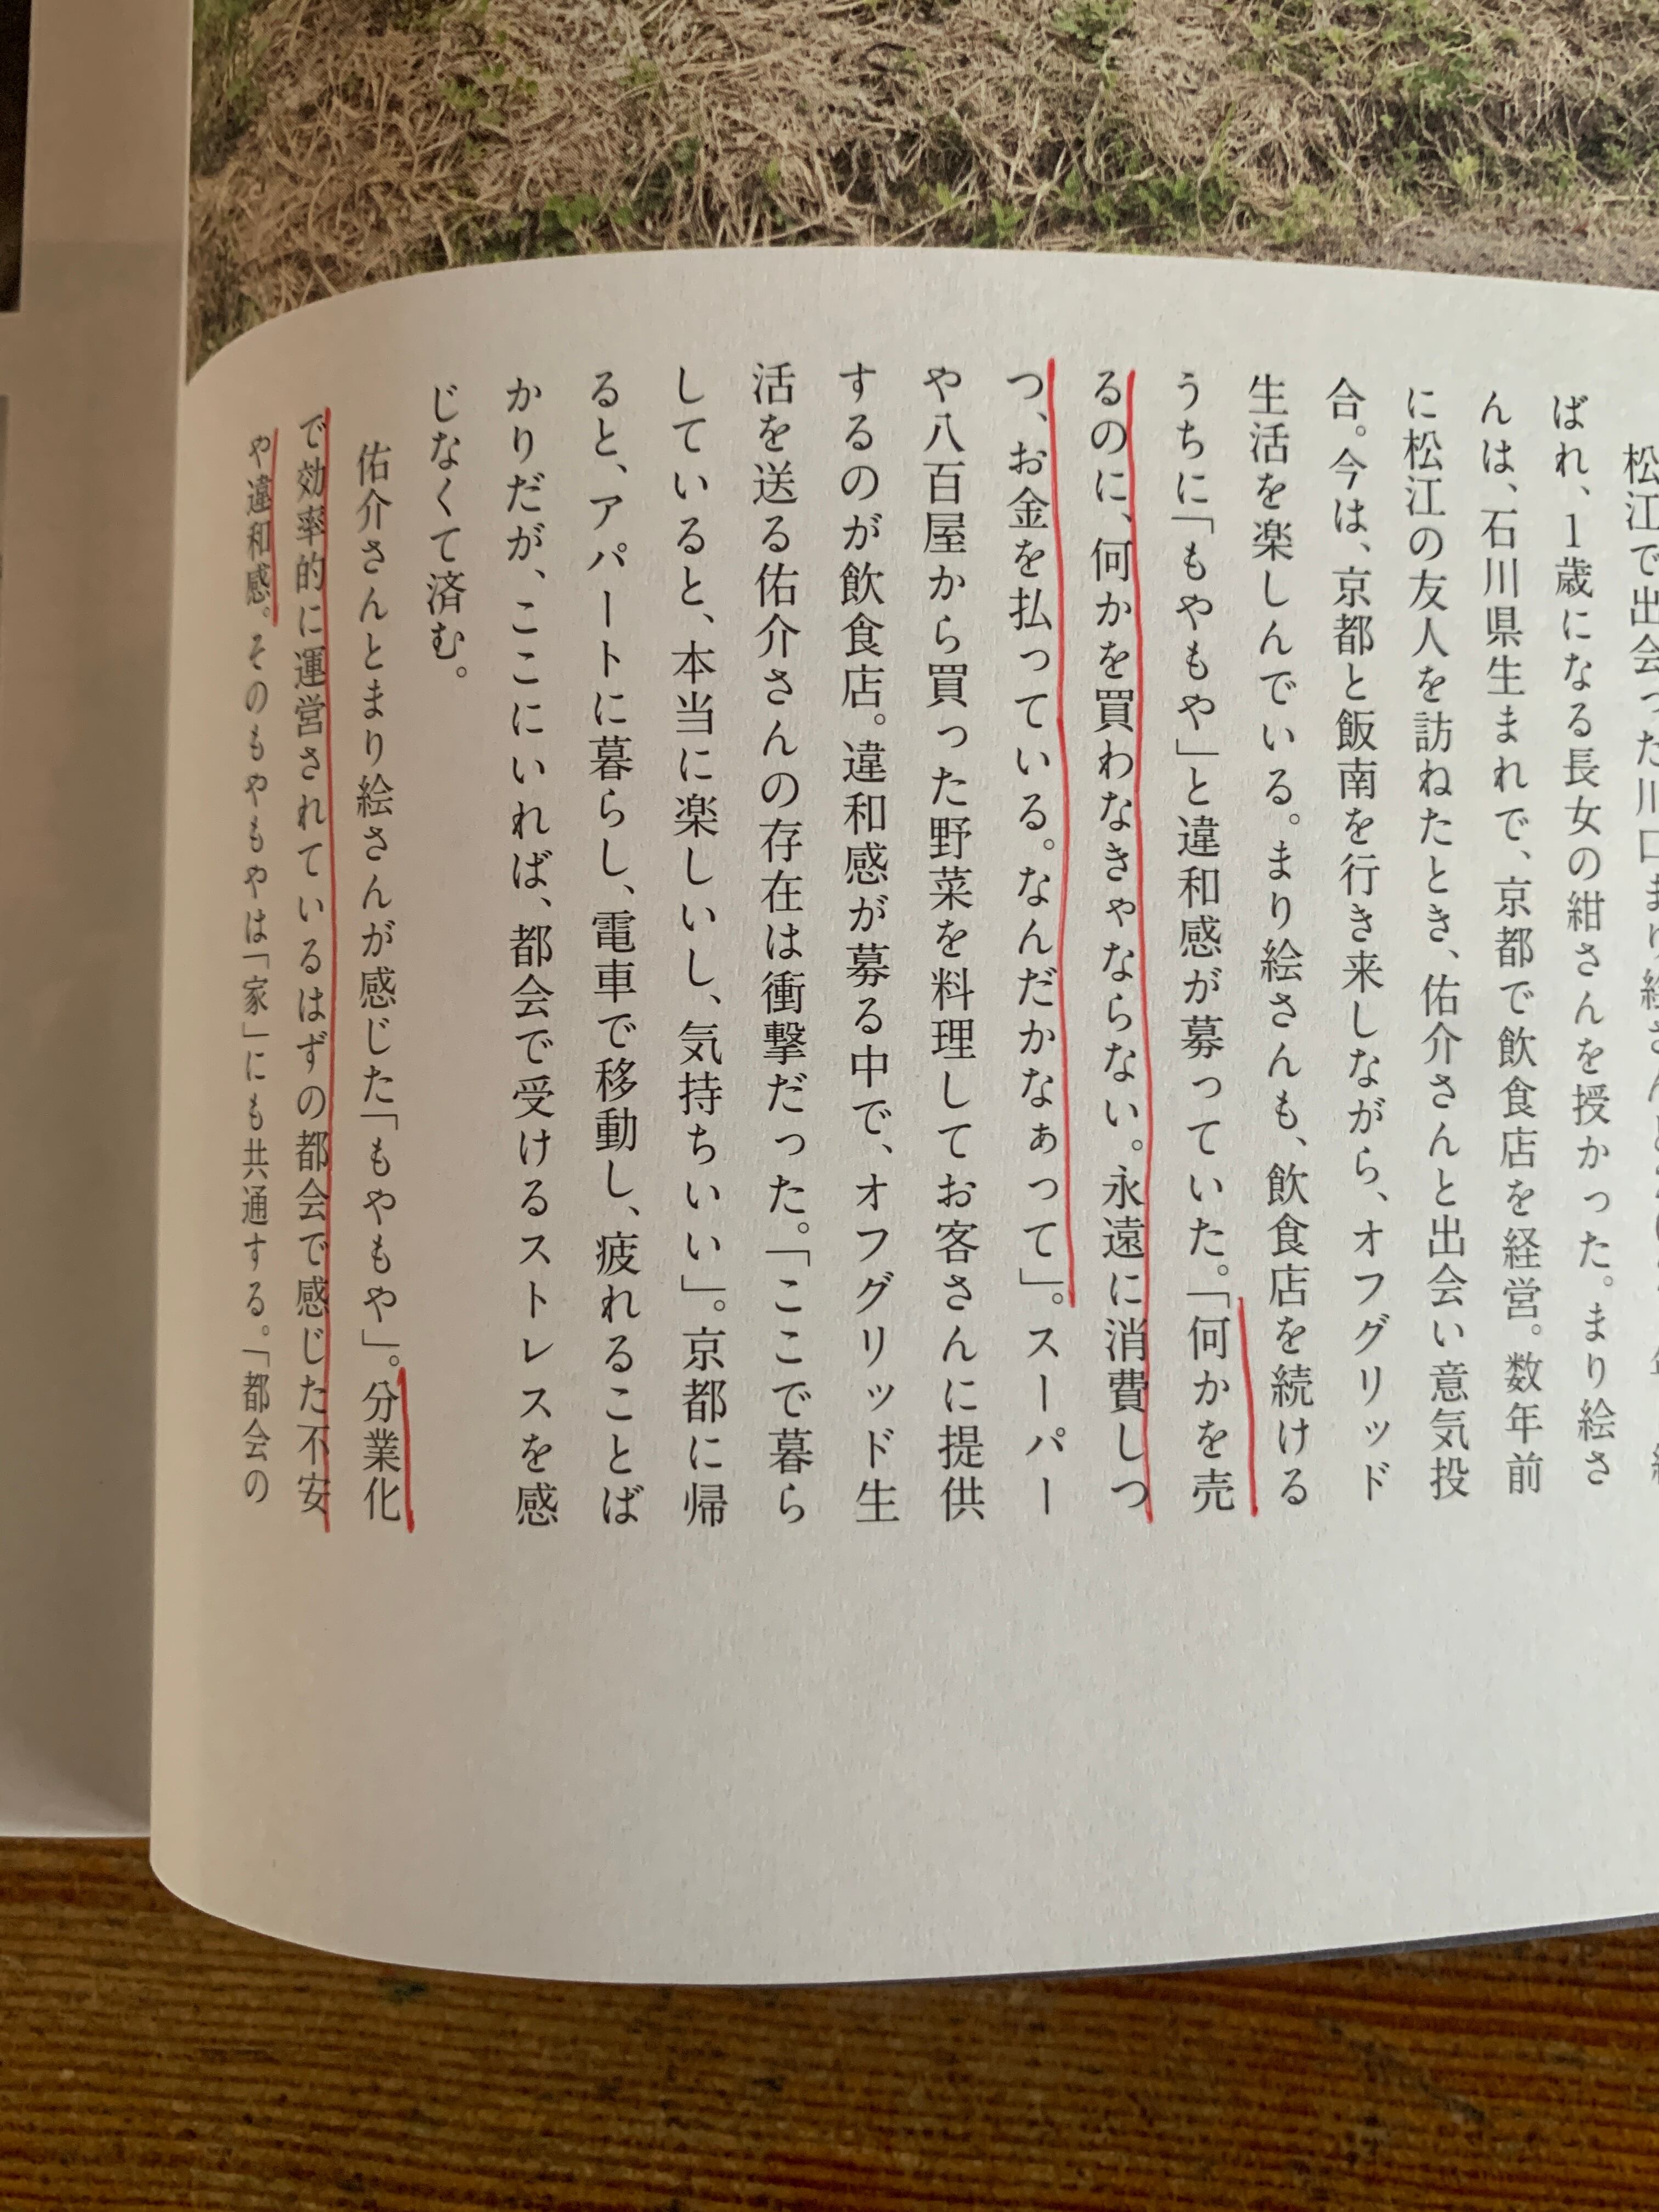 松江で出会った川口まり絵さんと
ばれ、1歳になる長女の紺さんを授かった。まり絵さ
んは、石川県生まれで、京都で飲食店を経営。数年前
に松江の友人を訪ねたとき、佑介さんと出会い意気投
合。今は、京都と飯南を行き来しながら、オフグリッド
生活を楽しんでいる。まり絵さんも、飲食店を続ける
うちに「もやもや」と違和感が募っていた。「何かを売
るのに、何かを買わなきゃならない。永遠に消費しつ
つ、お金を払っている。なんだかなぁって」。スーパー
や八百屋から買った野菜を料理してお客さんに提供
するのが飲食店。違和感が募る中で、オフグリッド生
活を送る佑介さんの存在は衝撃だった。「ここで暮ら
していると、本当に楽しいし、気持ちいい」。京都に帰
ると、アパートに暮らし、電車で移動し、疲れることば
かりだが、ここにいれば、都会で受けるストレスを感
じなくて済む。
佑介さんとまり絵さんが感じた「もやもや」。分業化
で効率的に運営されているはずの都会で感じた不安
や違和感。そのもやもやは「家」にも共通する。「都会の